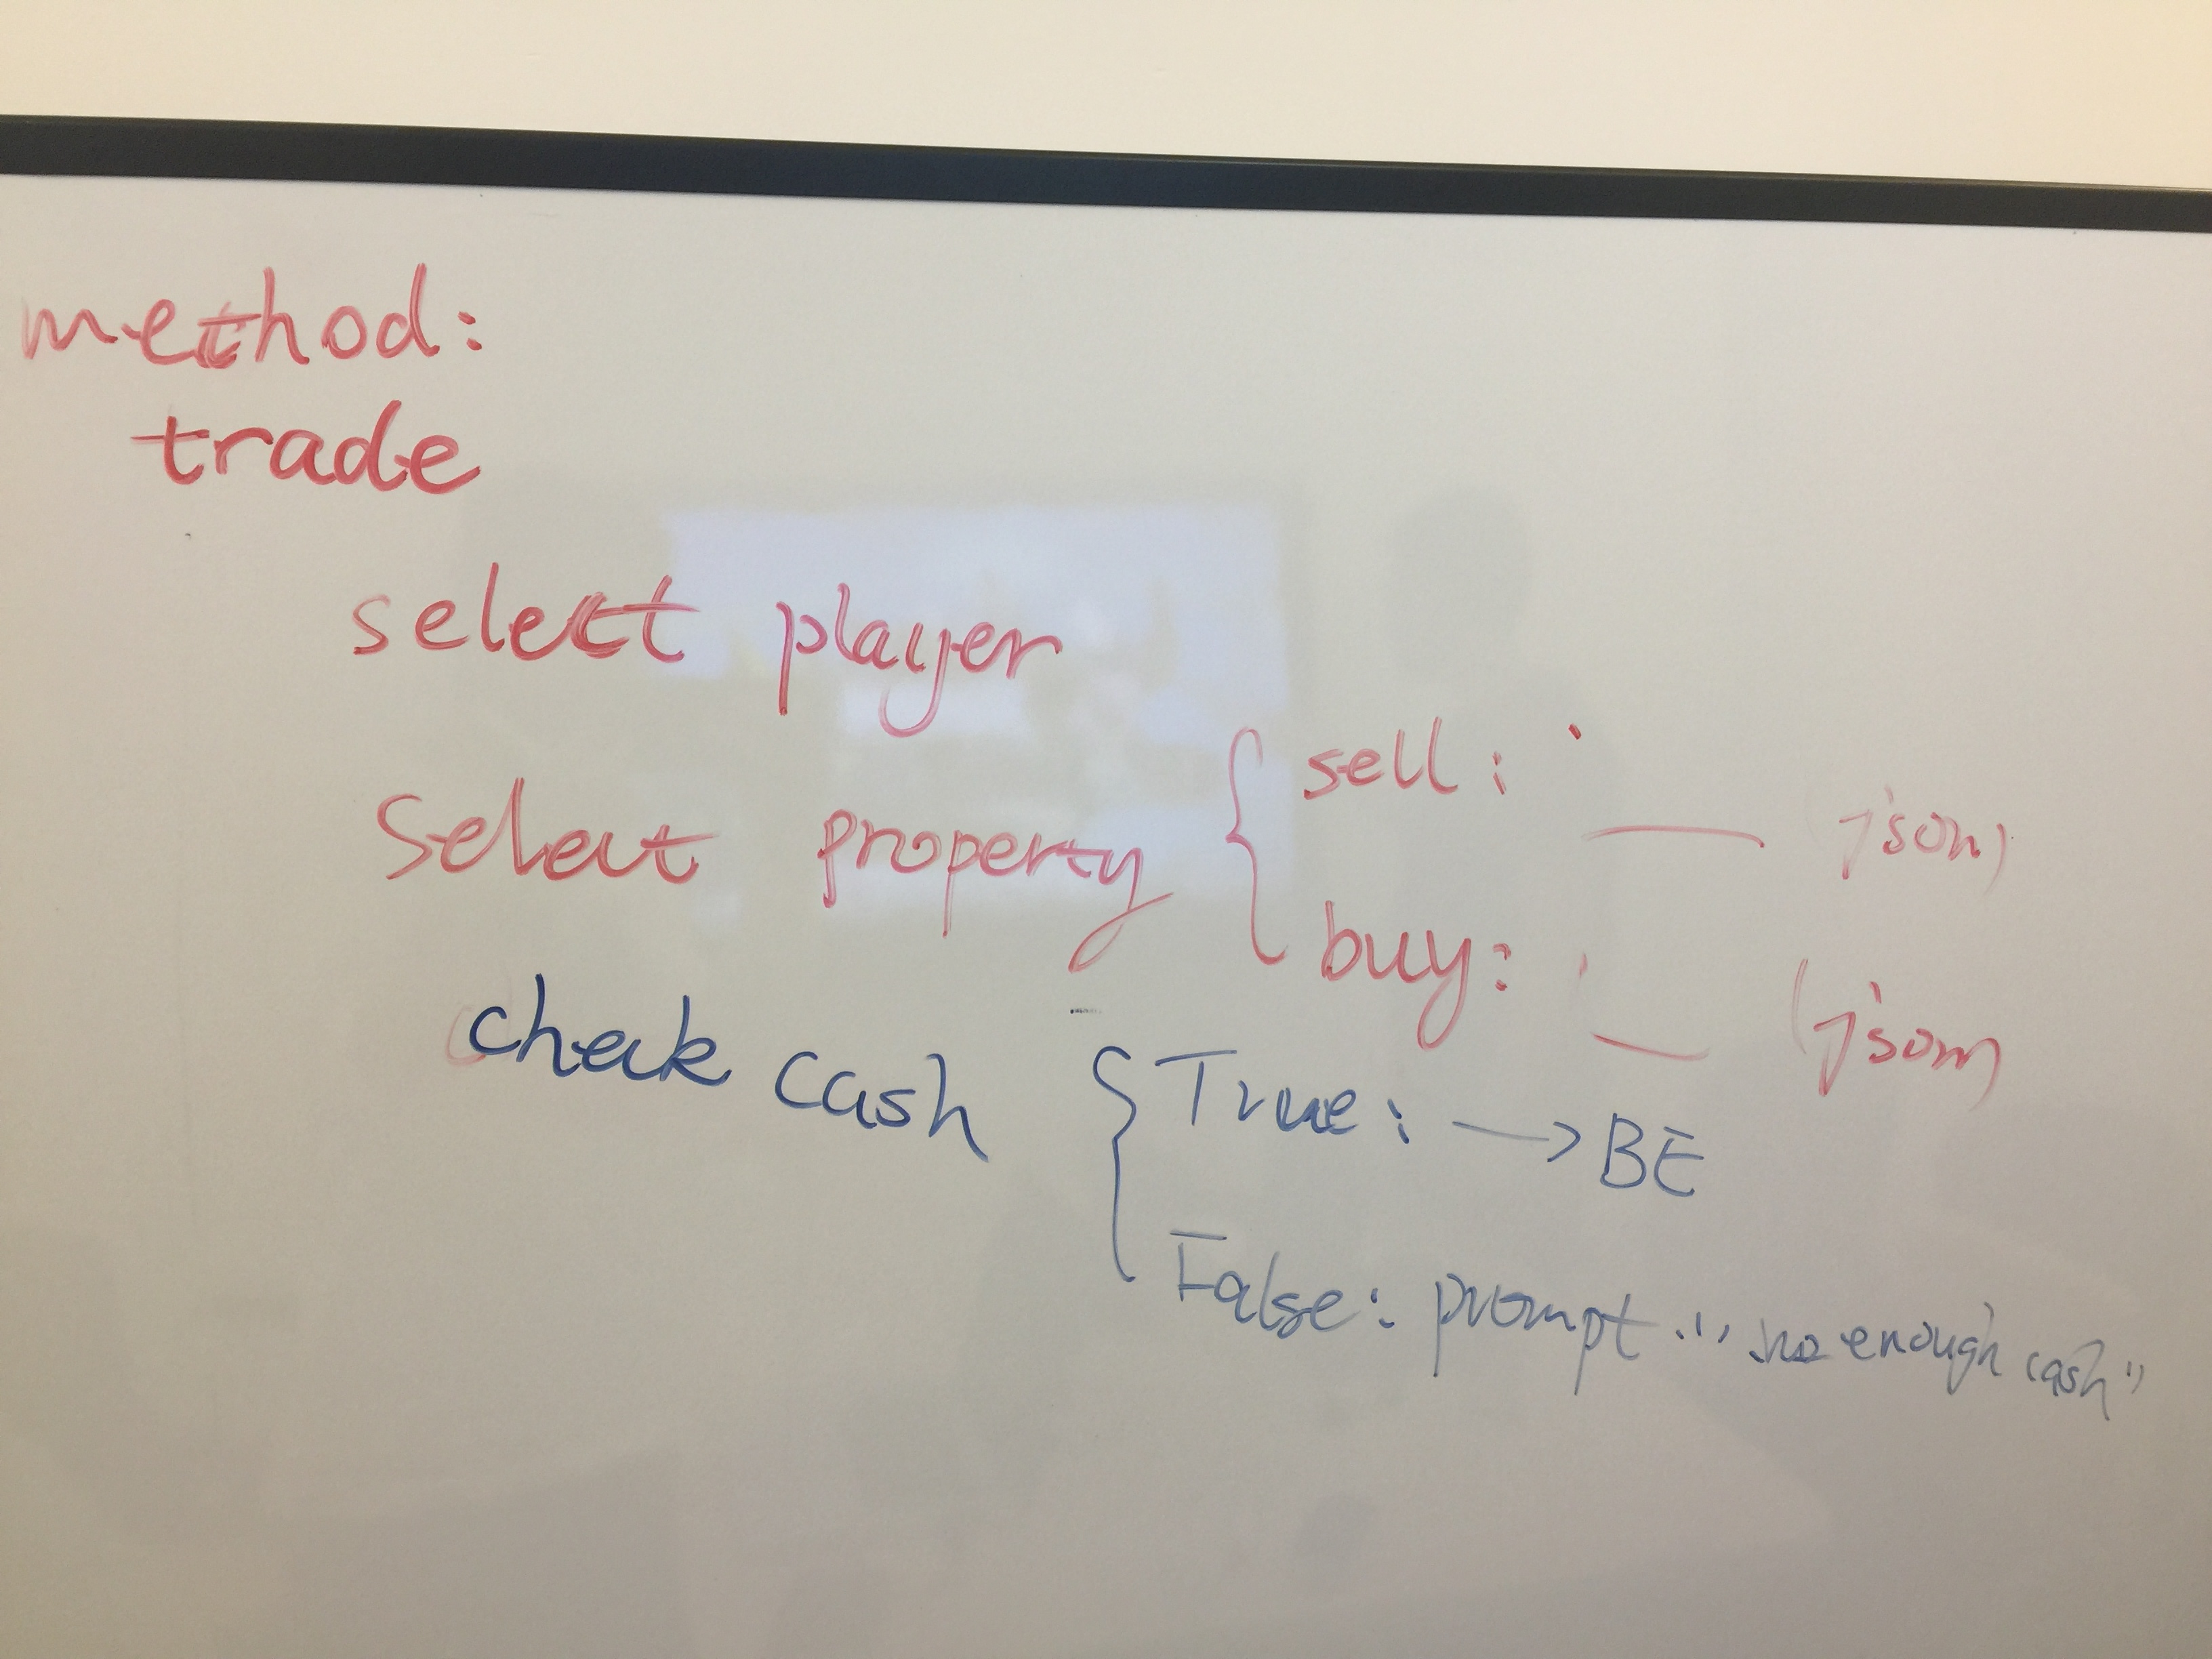 method:
trade
select player
select property { sell: — (json)
buy: — (json)
check cash { True: → BE
False: prompt "no enough cash"